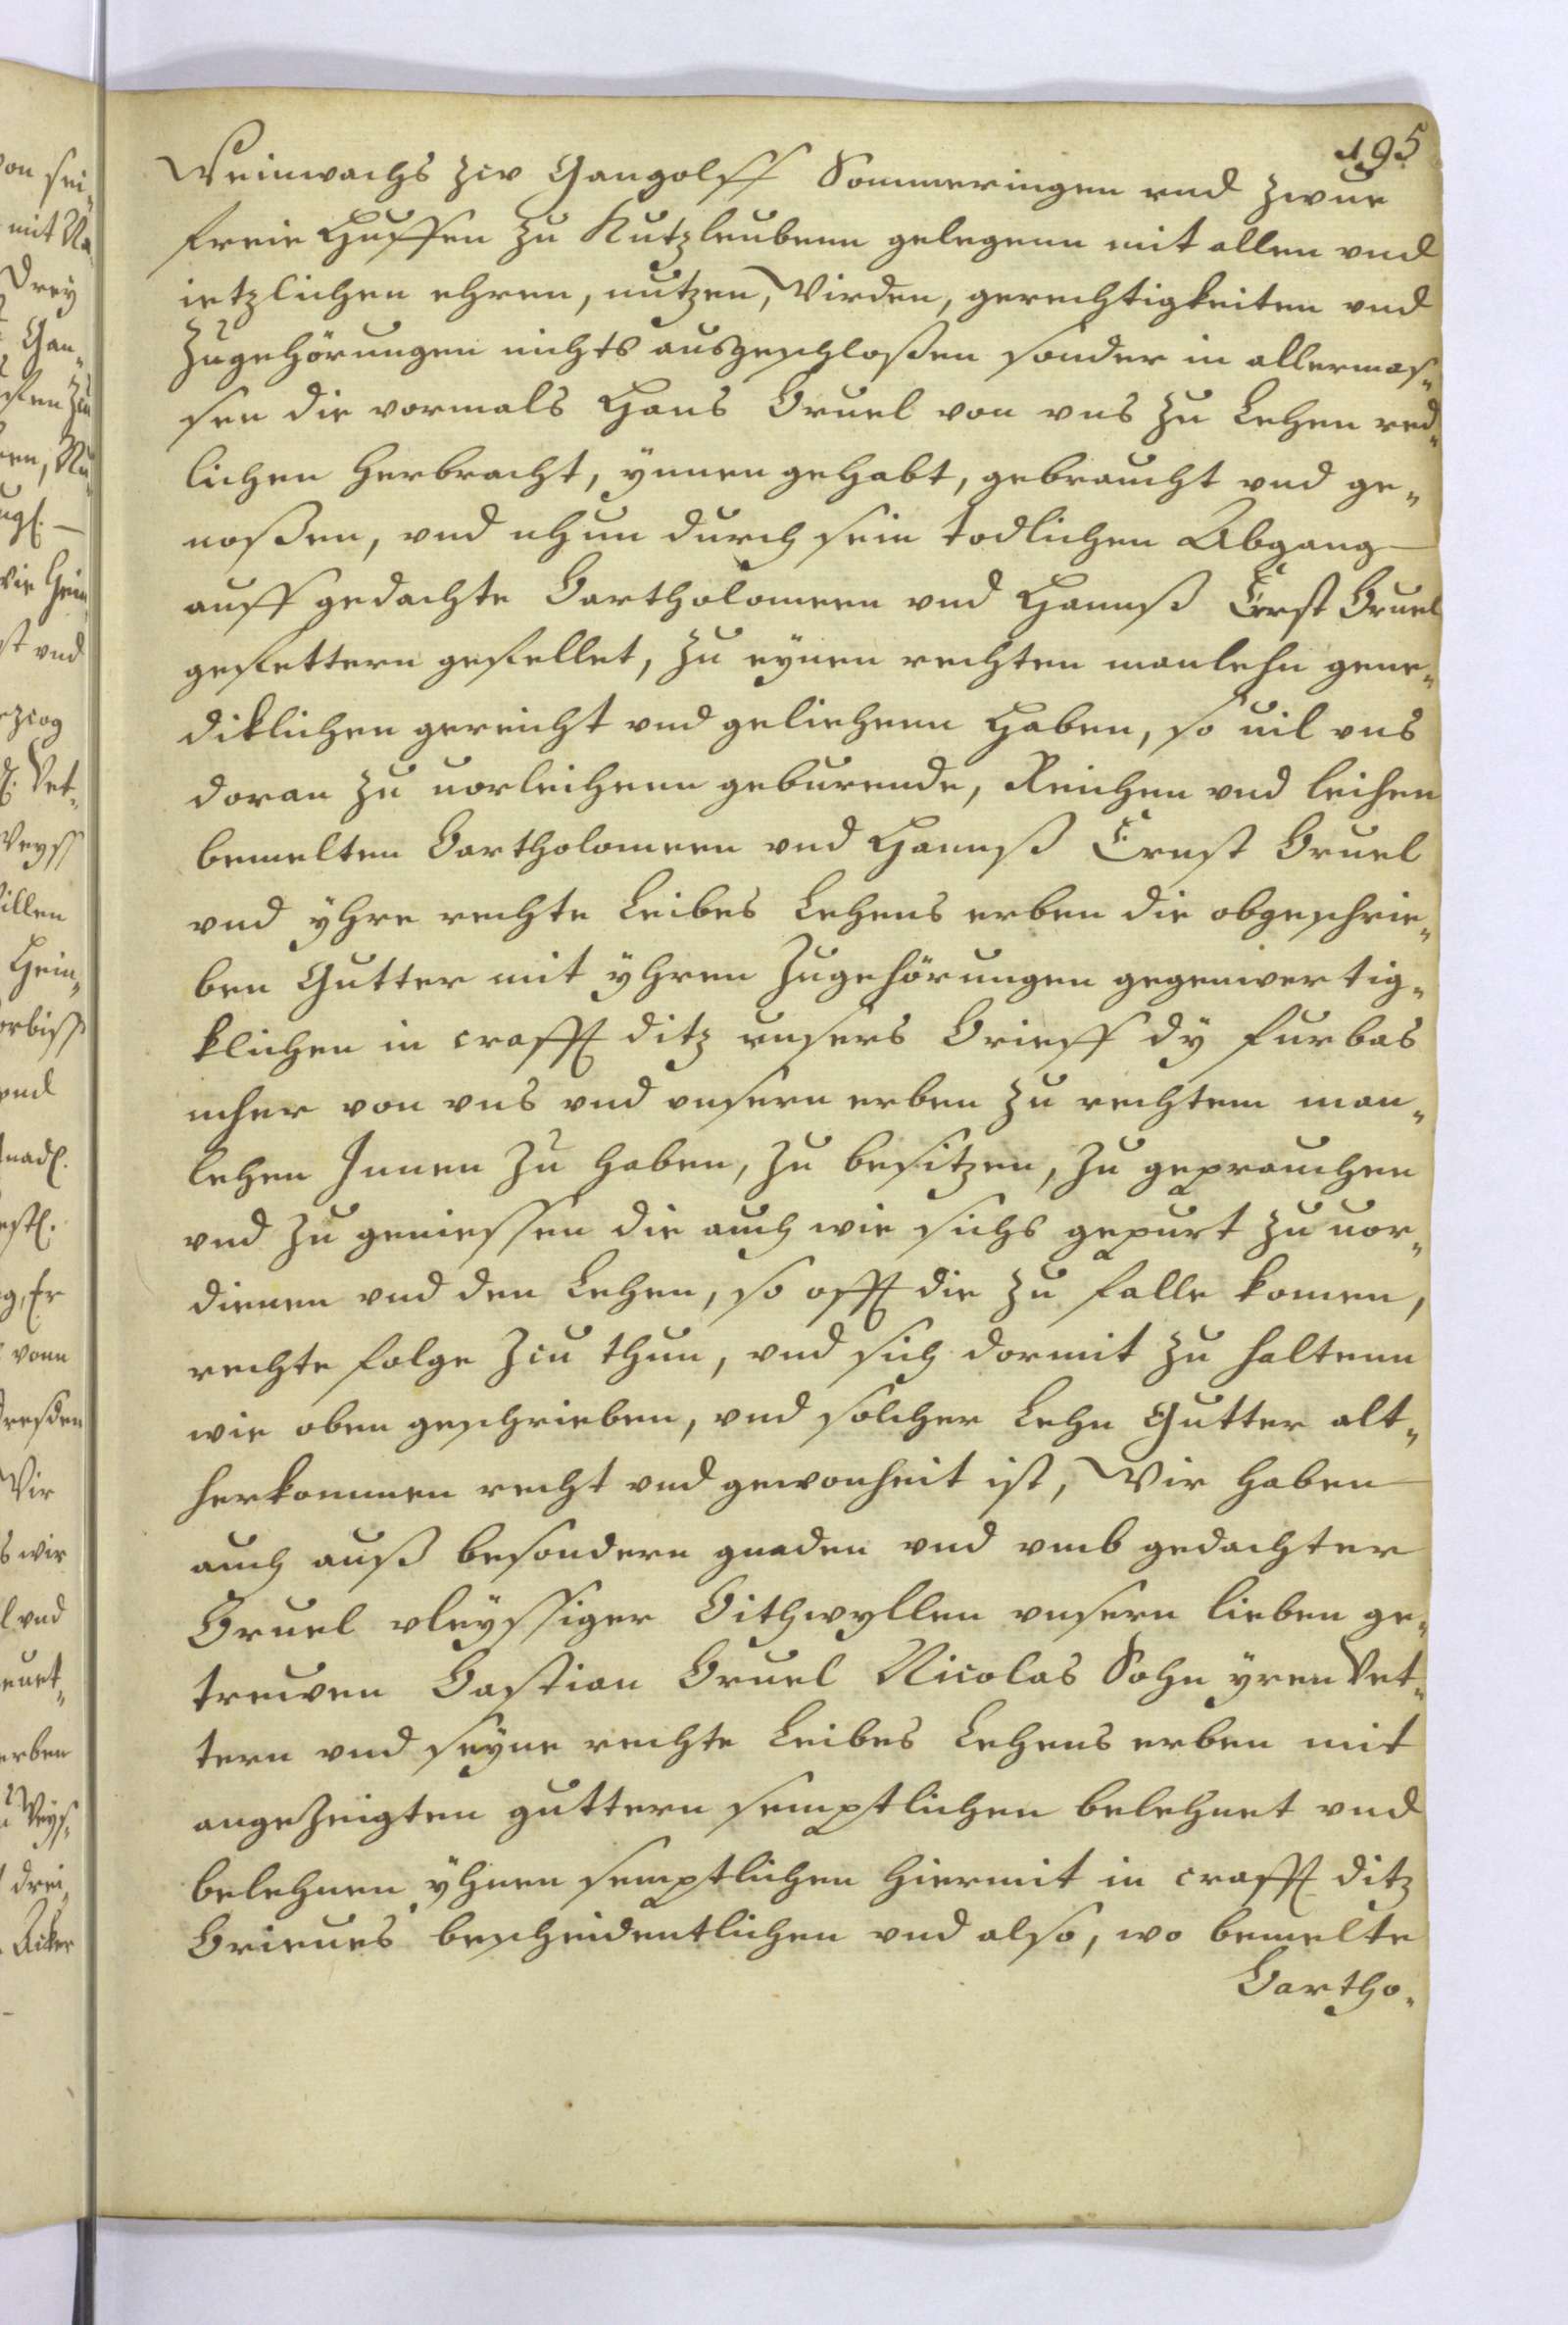 195
Weinwachs zcv Gangolff Sommeringen vnd zwue
freie Huffen zu Kutzleubenn gelegenn mit allen vnd
ietzlichen ehren, nutzen, Wirden, gerechtigkeiten vnd
Zugehörungen nichts ausgeschloßen sonder in allermas„
sen die vormals Hans Bruel von vns zu Lehen red„
lichen herbracht, ynnen gehabt, gebraucht vnd ge„
noßen, vnd nhun durch sein todlichen Abgang
auff gedachte Bartholomeen vnd Hannß Ernst Bruel
gefettern gefellet, zu eynen rechten manlehn gene„
diklichen gereicht vnd geliehenn haben, so uil vns
doran zu uorleihenn geburende, Reichen vnd leihen
bemelten Bartholomeen vnd Hannß Ernst Bruel
vnd yhre rechte Leibes Lehens erben die obgeschrie„
ben Gutter mit yhren Zugehörungen gegenwertig„
klichen in crafft ditz vnsers Brieff dy furbas
mher von vns vnd vnsern erben zu rechtem man„
lehen Innen zu haben, zu besitzen, zu geprauchen
vnd zu geniessen die auch wie sichs gepurt zu uor„
dienen vnd den Lehen, so offt die zu falle komen,
rechte folge zcu thun, vnd sich dormit zu haltenn
wie oben geschrieben, vnd solcher Lehn Gutter alt„
herkommen recht vnd gewonheit ist, Wir haben
auch auß besondern gnaden vnd vmb gedachter
Bruel vleyssiger Bithwyllen vnsern lieben ge„
trewen Bastian Bruel Nicolas Sohn yren Vet„
tern vnd seyne rechte Leibes Lehens erben mit
angezeigten guttern semptlichen belehnet vnd
belehnen yhnen semptlichen hiermit in crafft ditz
Brieues bescheidentlichen vnd also, wo bemelte
Bartho„